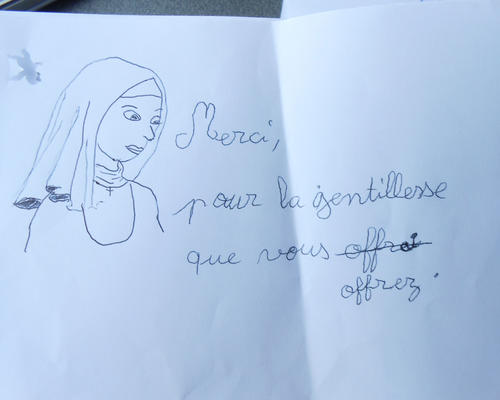 Merci,
pour la gentillesse
que vous offrai
offrez.